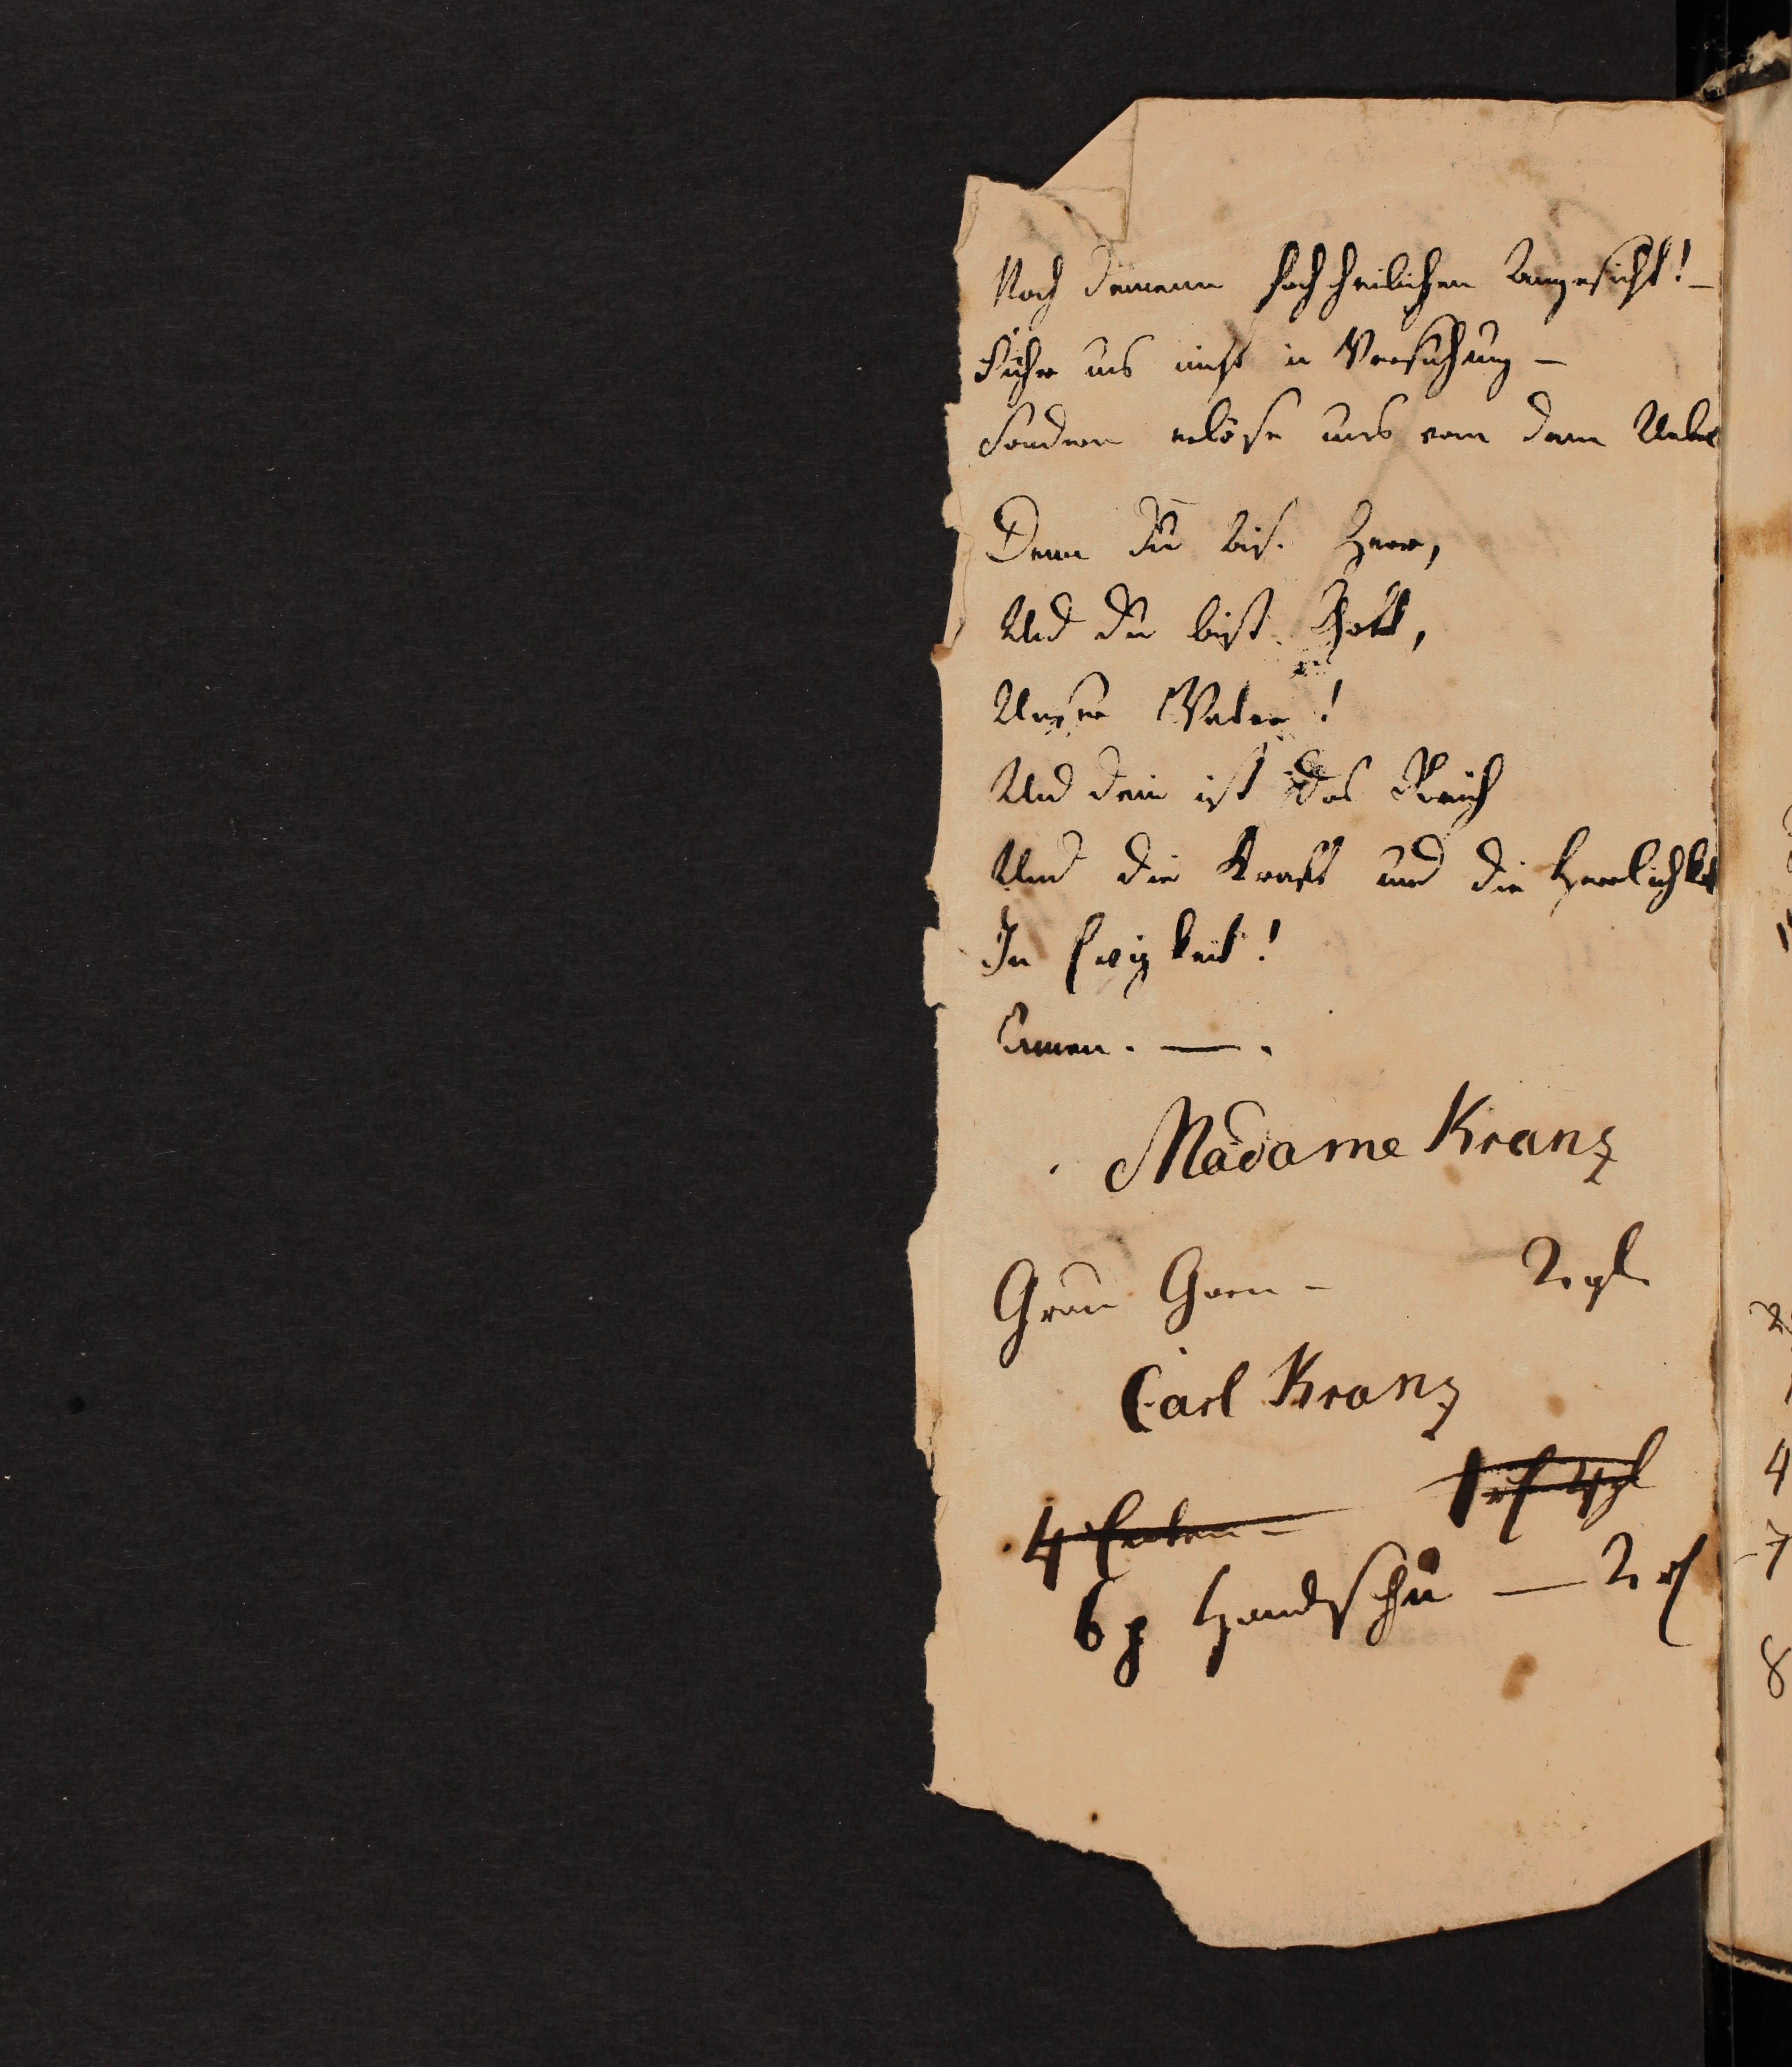 Nach deinem hochheilichen Angesicht! –
Führ uns nicht in Versuchung –
Sondern erlöse uns von dem Uebel
Denn Du bist Herr,
Und Du bist Gott,
Unser Vater!
Und dein ist das Reich
Und die Kraft und die Herrlichkt
In Ewigkeit!
Amen. — .
Madame Kranz
Grau Garn – 2 gl
Carl Kranz
4 Enten – 1 rl 4 gl
6 p Handschu — 2 rl